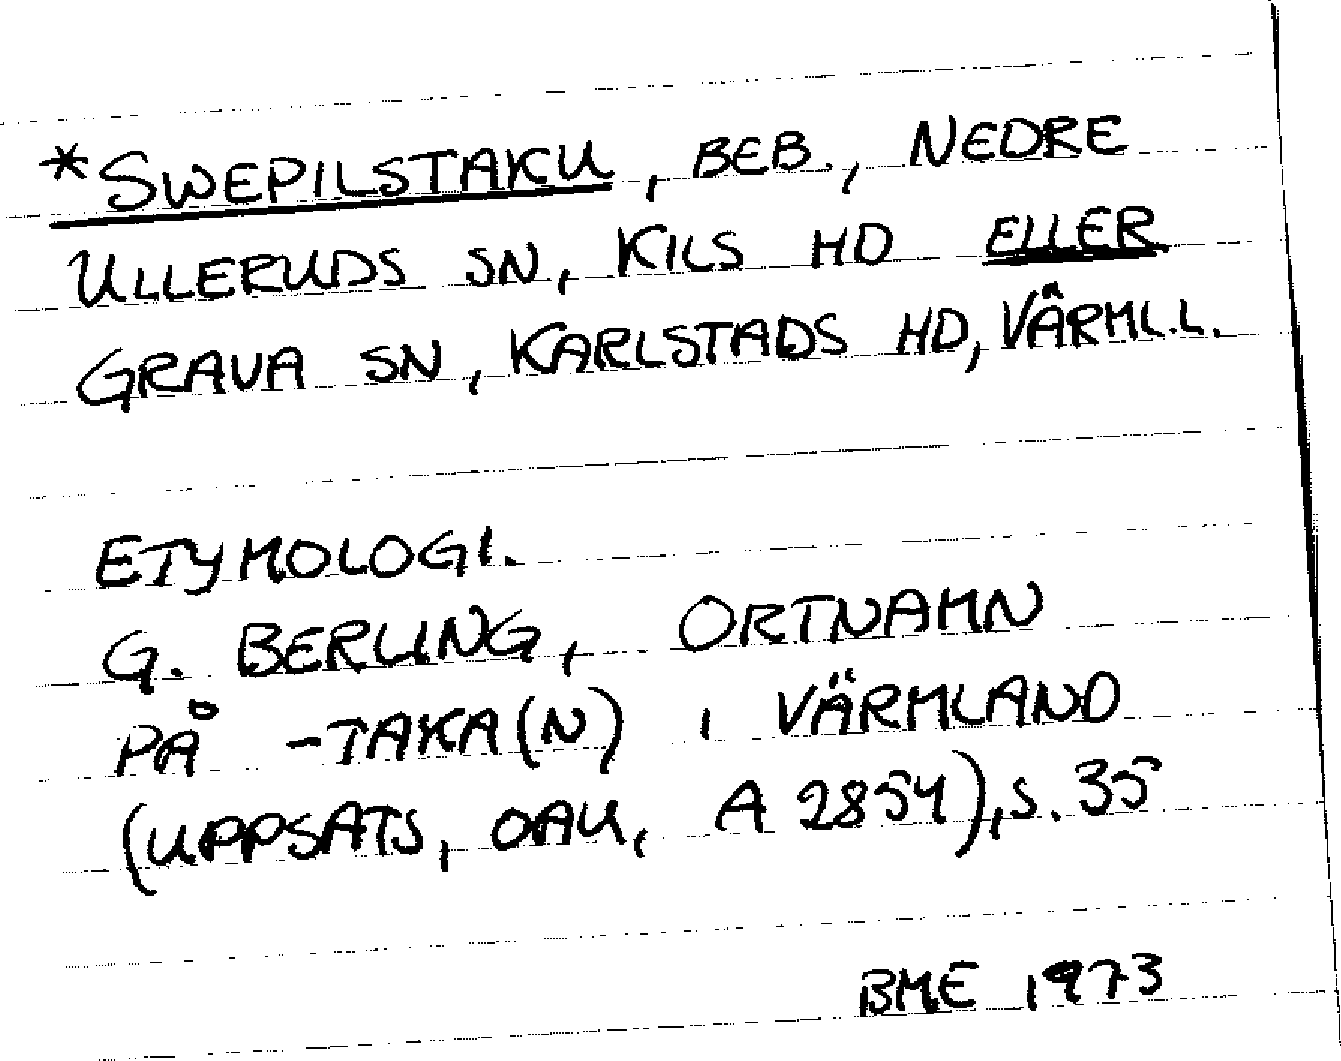 *SWEPILSTAKU, BEB., NEDRE
ULLERUDS SN, KILS HD ELLER
GRAVA SN, KARLSTADS HD, VÄRML.L.
ETYMOLOGI.
G. BERLING, ORTNAMN
PÅ -TAKA(N) I VÄRMLAND
(UPPSATS, OAU, A 2854), S. 35
BME 1973